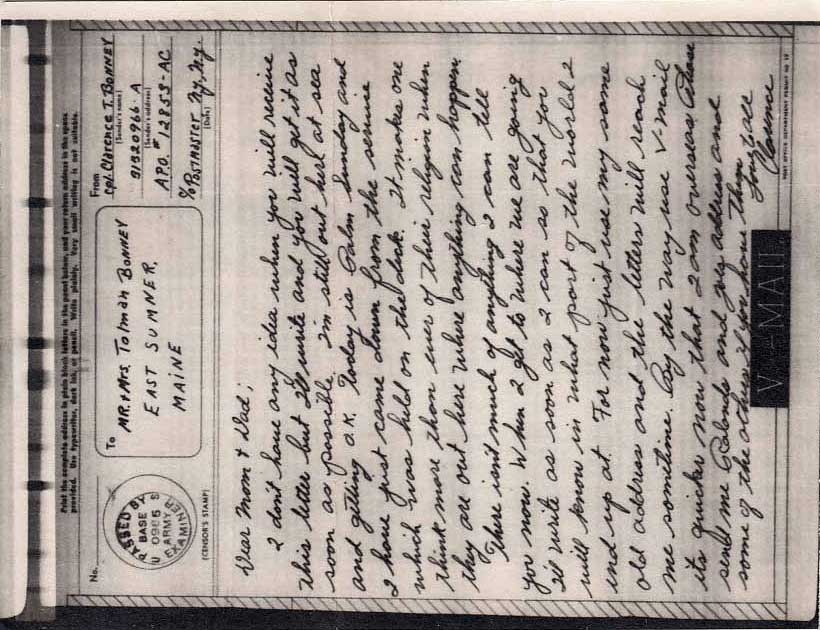 Print the complete address in plain block letters in the panel below, and your return address in the space
provided. Use typewriter, dark ink, or pencil. Write plainly. Very small writing is not suitable.
No.
PASSED BY
BASE
U 0985 S
ARMY
EXAMINER
(CENSOR'S STAMP)
To
MR. & MRS. Tolman BONNEY
EAST SUMNER,
MAINE
From
Cpl. Clarence T. BONNEY
(Sender's name)
31320966 · A
(Sender's address)
APO. # 12853-AC
% POSTMASTER Ny, Ny.
(Date)
Dear Mom & Dad;
I don't have any idea when you will receive
this letter but I'll write and you will get it as
soon as possible. I'm still out here at sea
and getting o.k. Today is Palm Sunday and
I have just came down from the service
which was held on the deck. It makes one
think more than ever of their religion when
they are out here where anything can happen
There isn't much of anything I can tell
you now. When I get to where we are going
I'll write as soon as I can so that you
will know in what part of the world I
end up at. For now just use my same
old address and the letters will reach
me sometime. By the way use V-mail
its quicker now that I am overseas. Please
send me Rolands and address and
some of the others if you have them
Clarence
V-MAIL
POST OFFICE DEPARTMENT PERMIT NO.